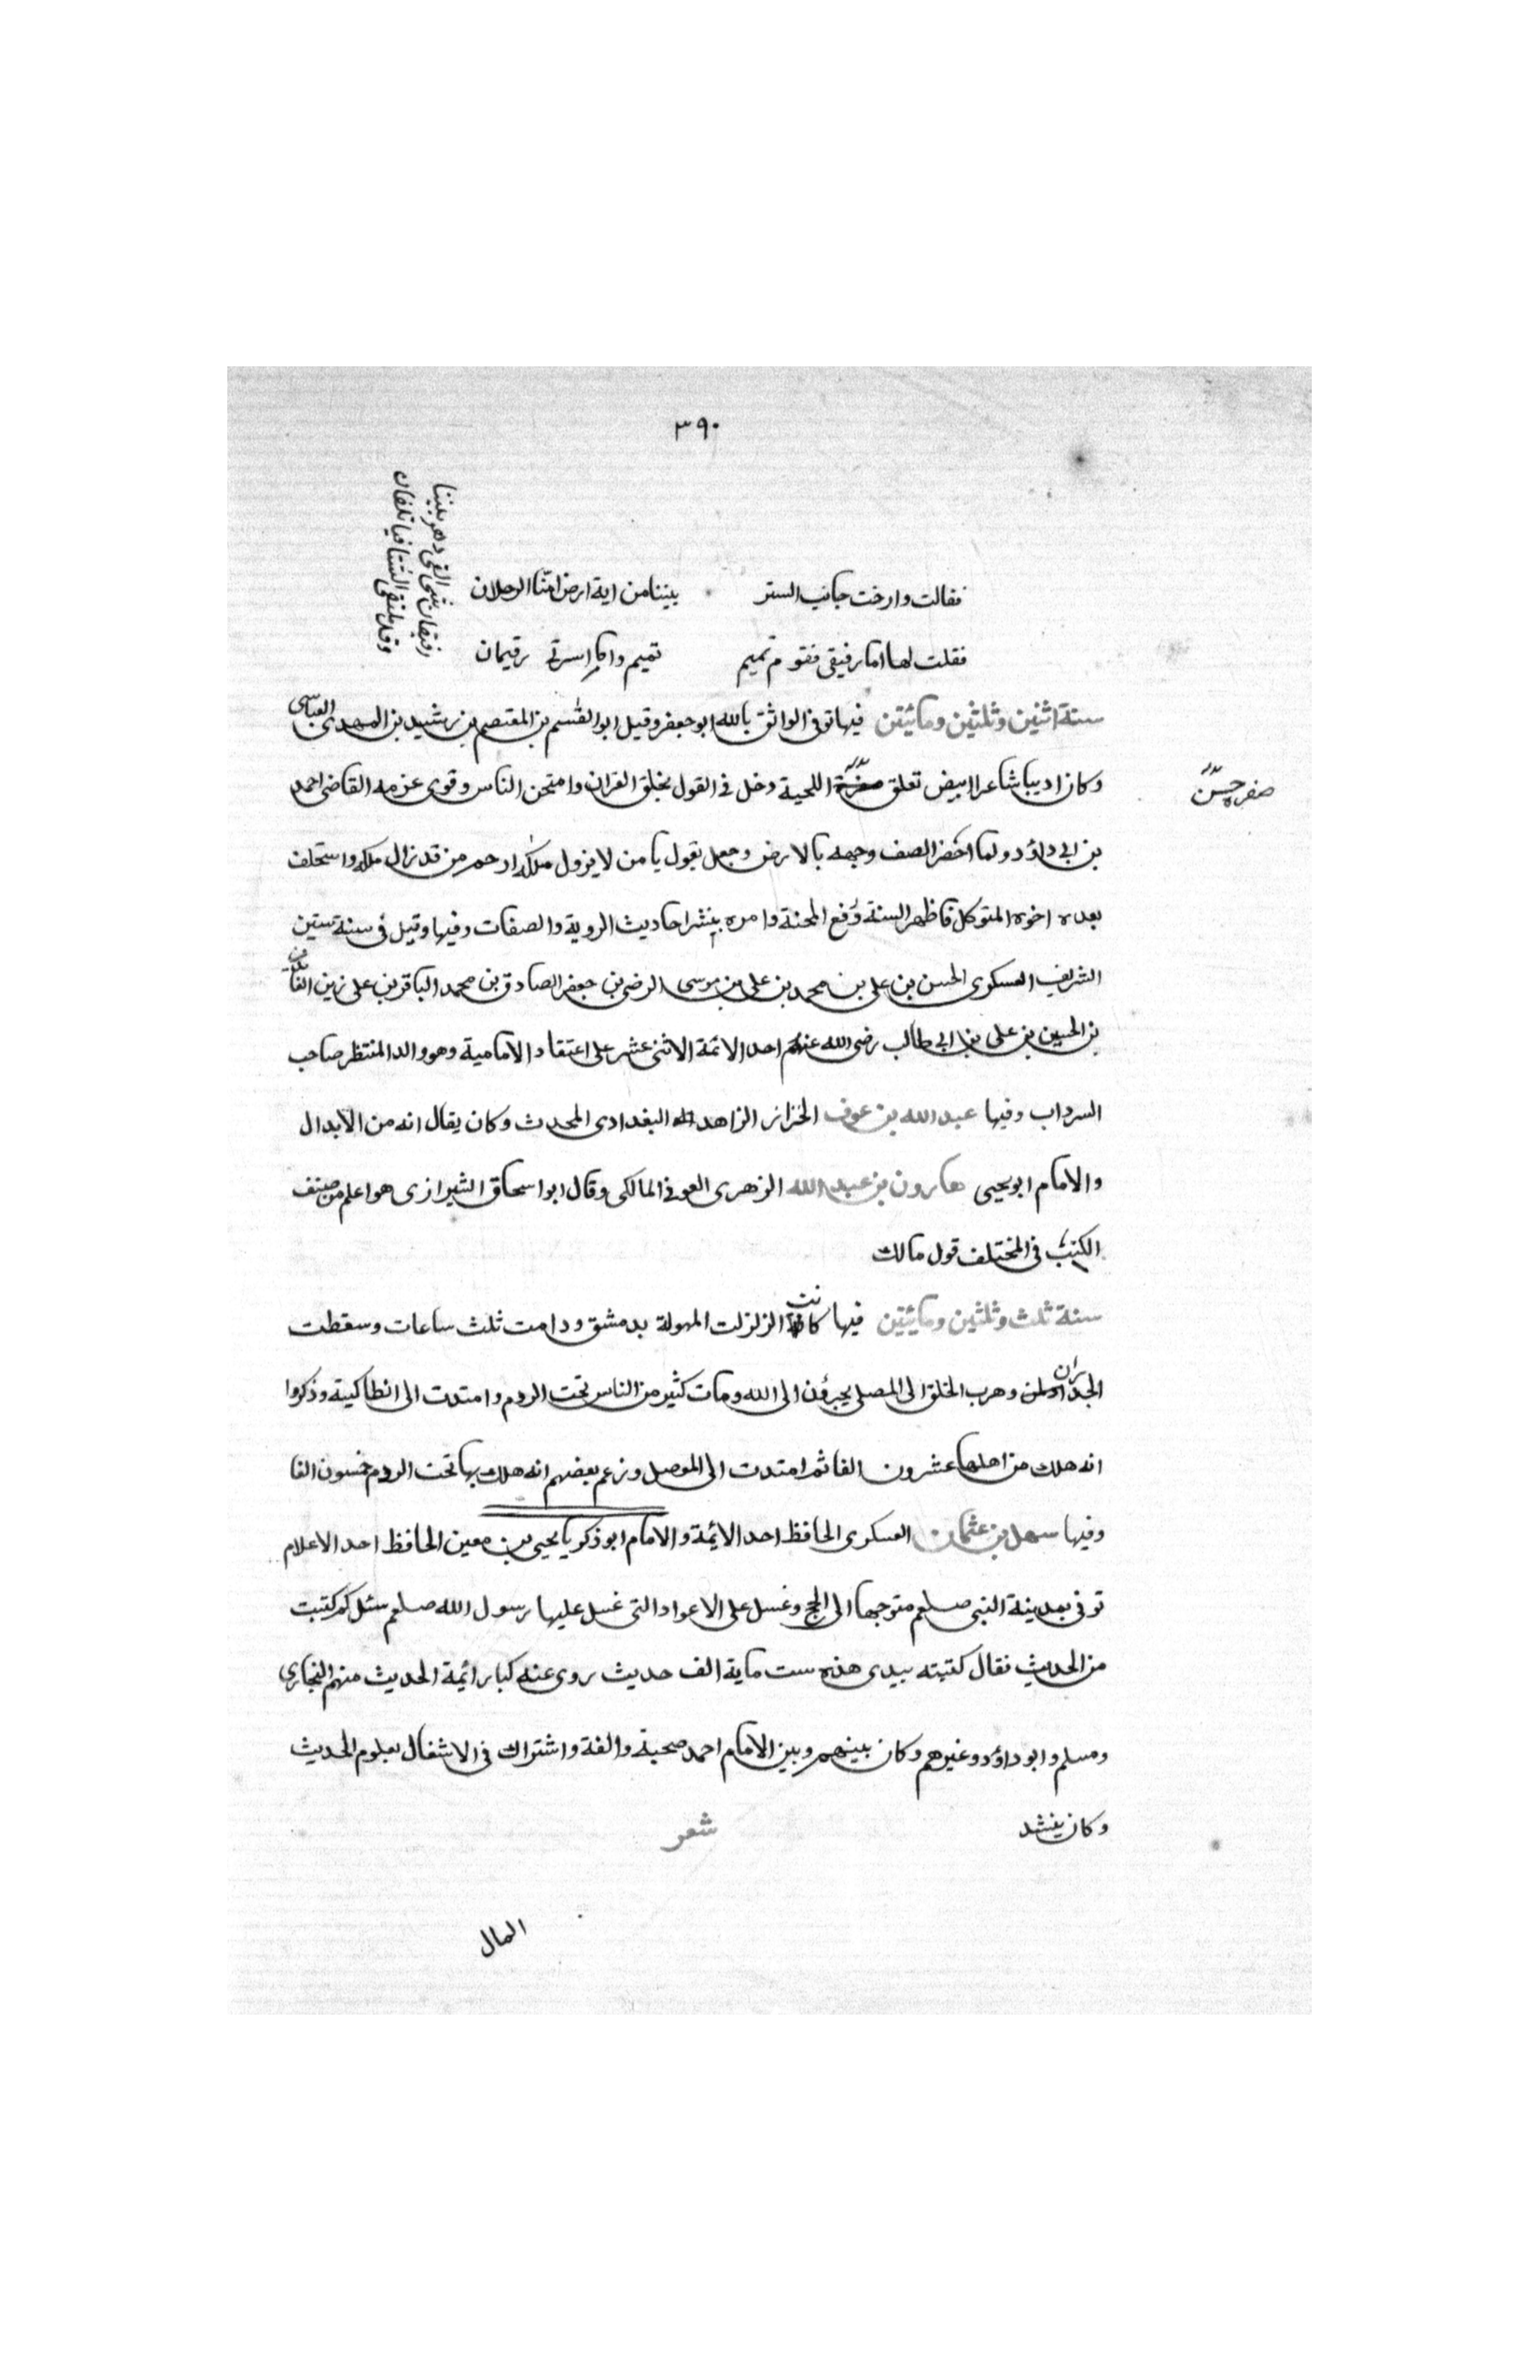 ٣٩٠
رفيقان شتى الف دهر بيننا
وقد يلتقى الشتا فيأتلفان
فقالت وارخت جانب الستر بيننا من اية ارض امّنا الرجلان
فقلت لها اما رفيقى فقوم تميم تميم واما اسرتى رقيمان
سنة اثنين وثلثين ومائيتن فيها توفى الواثق بالله ابو جعفر وقيل ابو القسم بن المعتصم بن رشيد بن المهدى العباسى
وكان اديبا شاعرا ابيض تعلق صفرة اللحية دخل فى القول بخلق القران وامتحن الناس وقوى عزمه القاضى احمد
صفره حسن
بن ابى داؤد ولما احضر الصف وجهه بالارض وجعل يقول يا من لا يزول ملكه ارحم من قد زال ملكه واستخلف
بعده اخوه المتوكل فاظهر السنة ورفع المحنة وامره بنشر احاديث الروية والصفات وفيها وقيل فى سنة ستين
الشريف العسكرى الحسن بن على بن محمد بن على بن موسى الرضى بن جعفر الصادق بن محمد الباقر بن على زين العابدين
بن الحسين بن على بن ابى طالب رضى الله عنهم احد الائمة الاثنى عشر على اعتقاد الامامية وهو والد المنتظر صاحب
السرداب وفيها عبد الله بن عوف الخزاز الزاهد البغدادى المحدث وكان يقال انه من الابدال
والامام ابو يحيى هارون بن عبد الله الزهرى العوفى المالكى وقال ابو اسحاق الشيرازى هو اعلم من صنف
الكتب فى المختلف قول مالك
سنة ثلث وثلثين ومائيتين فيها كانت الزلزلت المهولة بدمشق ودامت ثلث ساعات وسقطت
الجدران وهرب الخلق الى المصلى يجرؤن الى الله ومات كثير من الناس تحت الردم وامتدت الى انطاكية وذكروا
انه هلك من اهلها عشرون الفا ثم امتدت الى الموصل وزعم بعضهم انه هلك بها تحت الردم خمسون الفا
وفيها سهل بن عثمان العسكرى الحافظ احد الائمة والامام ابو ذكريا يحيى بن معين الحافظ احد الاعلام
توفى بمدينة النبى صلعم متوجها الى الحج وغسل على الاعواد التى غسل عليها رسول الله صلعم سئل كم كتبت
من الحديث فقال كتبته بيدى هذه ست ماية الف حديث روى عنه كبار ائمة الحديث منهم البخارى
ومسلم وابو داؤد وغيرهم وكان بينهم وبين الامام احمد صحبة والفة واشتراك فى الاشغال بعلوم الحديث
وكان ينشد شعر
المال